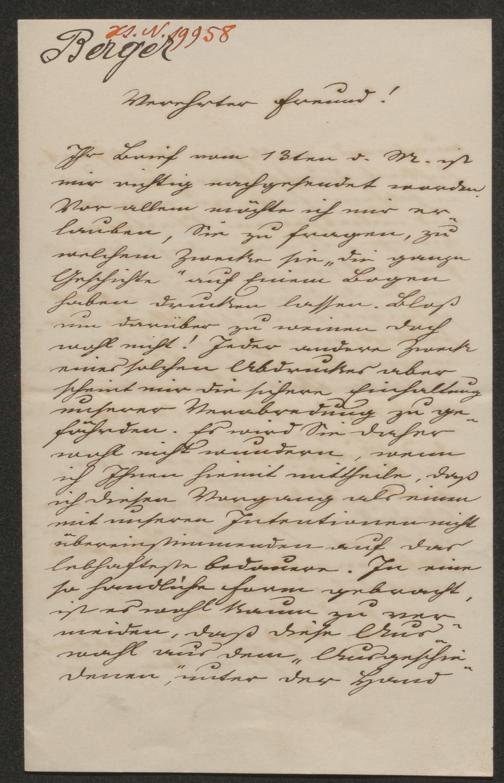 Z.N. 19958
Berger
Verehrter Freund!
Ihr Brief vom 13ten d. M. ist
mir richtig nachgesendet worden.
Vor allem möchte ich mir er-
lauben, Sie zu fragen, zu
welchem Zwecke sie „die ganze
Geschichte" auf Einem Bogen
haben drucken lassen. Bloß
um darüber zu weinen doch
wohl nicht! Jeder andere Zweck
eines solchen Abdruckes aber
scheint mir die sichere Einhaltung
unserer Verabredung zu ge-
fährden. Es wird Sie daher
wohl nicht wundern, wenn
ich Ihnen hiemit mittheile, daß
ich diesen Vorgang als einen
mit unseren Intentionen nicht
übereinstimmenden auf das
lebhafteste bedauere. In eine
so handliche Form gebracht,
ist es wohl kaum zu ver-
meiden, daß diese Aus-
wahl aus dem „Ausgeschie-
denen", unter der Hand